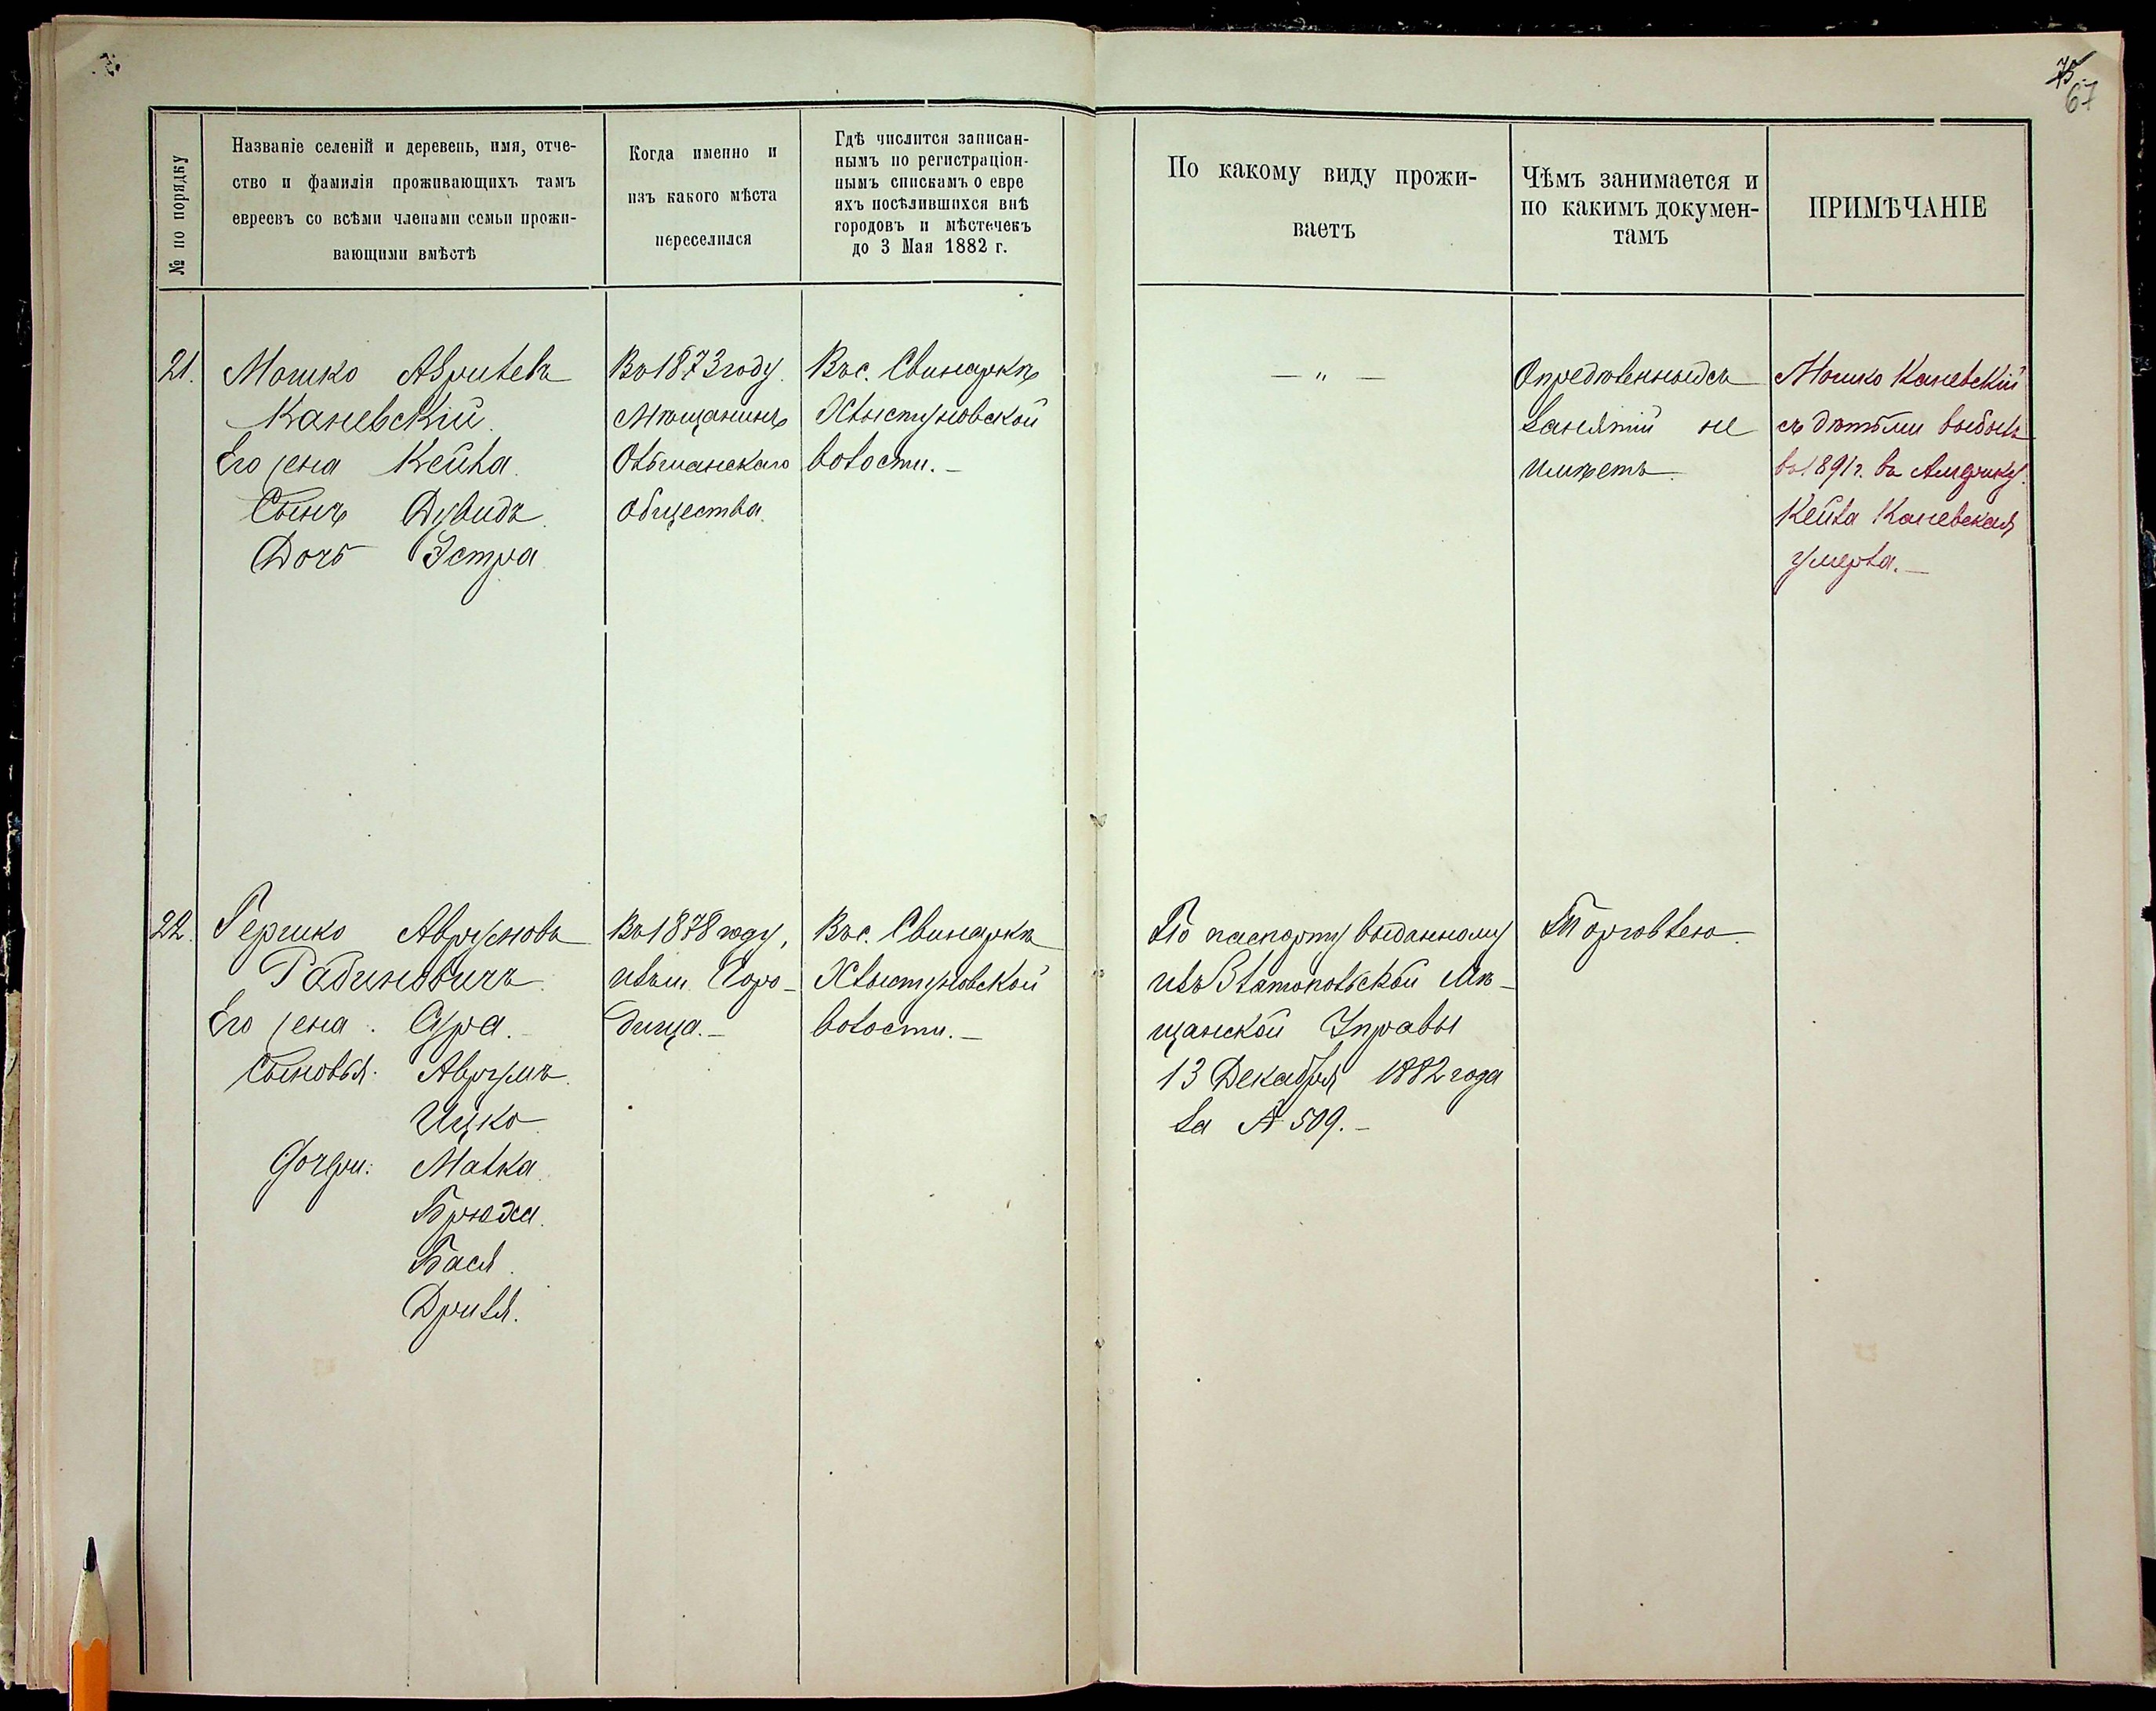 75
67
№ по порядку
Названіе селеній и деревень, имя, отче-
ство и фамилія проживающихъ тамъ
евреевъ со всѣми членами семьи прожи-
вающими вмѣстѣ
Когда именно и
изъ какого мѣста
переселился
Гдѣ числится записан-
нымъ по регистраціон-
нымъ спискамъ о евре
яхъ поселившихся внѣ
городовъ и мѣстечекъ
до 3 Мая 1882 г.
По какому виду прожи-
ваетъ
Чѣмъ занимается и
по какимъ докумен-
тамъ
ПРИМѢЧАНІЕ
21.
Мошко Азрилевъ
Каневскій.
Его жена Кейла.
Сынъ Дувидъ.
Дочь Эстра
Въ 1873 году.
Мѣщанинъ
Ольшанскаго
общества.
Въ с. Свинаркѣ
Хлыстуновской
волости.–
– „ –
Опредѣленныхъ
занятій не
имѣетъ.
Мошко Каневскій
съ дѣтьми выбылъ
въ 1891 г. въ Америку.
Кейла Каневская
умерла.–
22.
Гершко Аврумовъ
Рабиновичъ.
Его жена. Сура.–
Сыновья: Аврумъ.
Ицко
Дочери: Малка.
Брюха.
Бася.
Дризя.
Въ 1878 году,
изъ м. Горо-
дища.–
Въ с. Свинаркѣ
Хлыстуновской
волости.–
По паспорту выданному
изъ Златопольской Мѣ-
щанской Управы
13 Декабря 1882 года
за № 509.–
Торговлею.